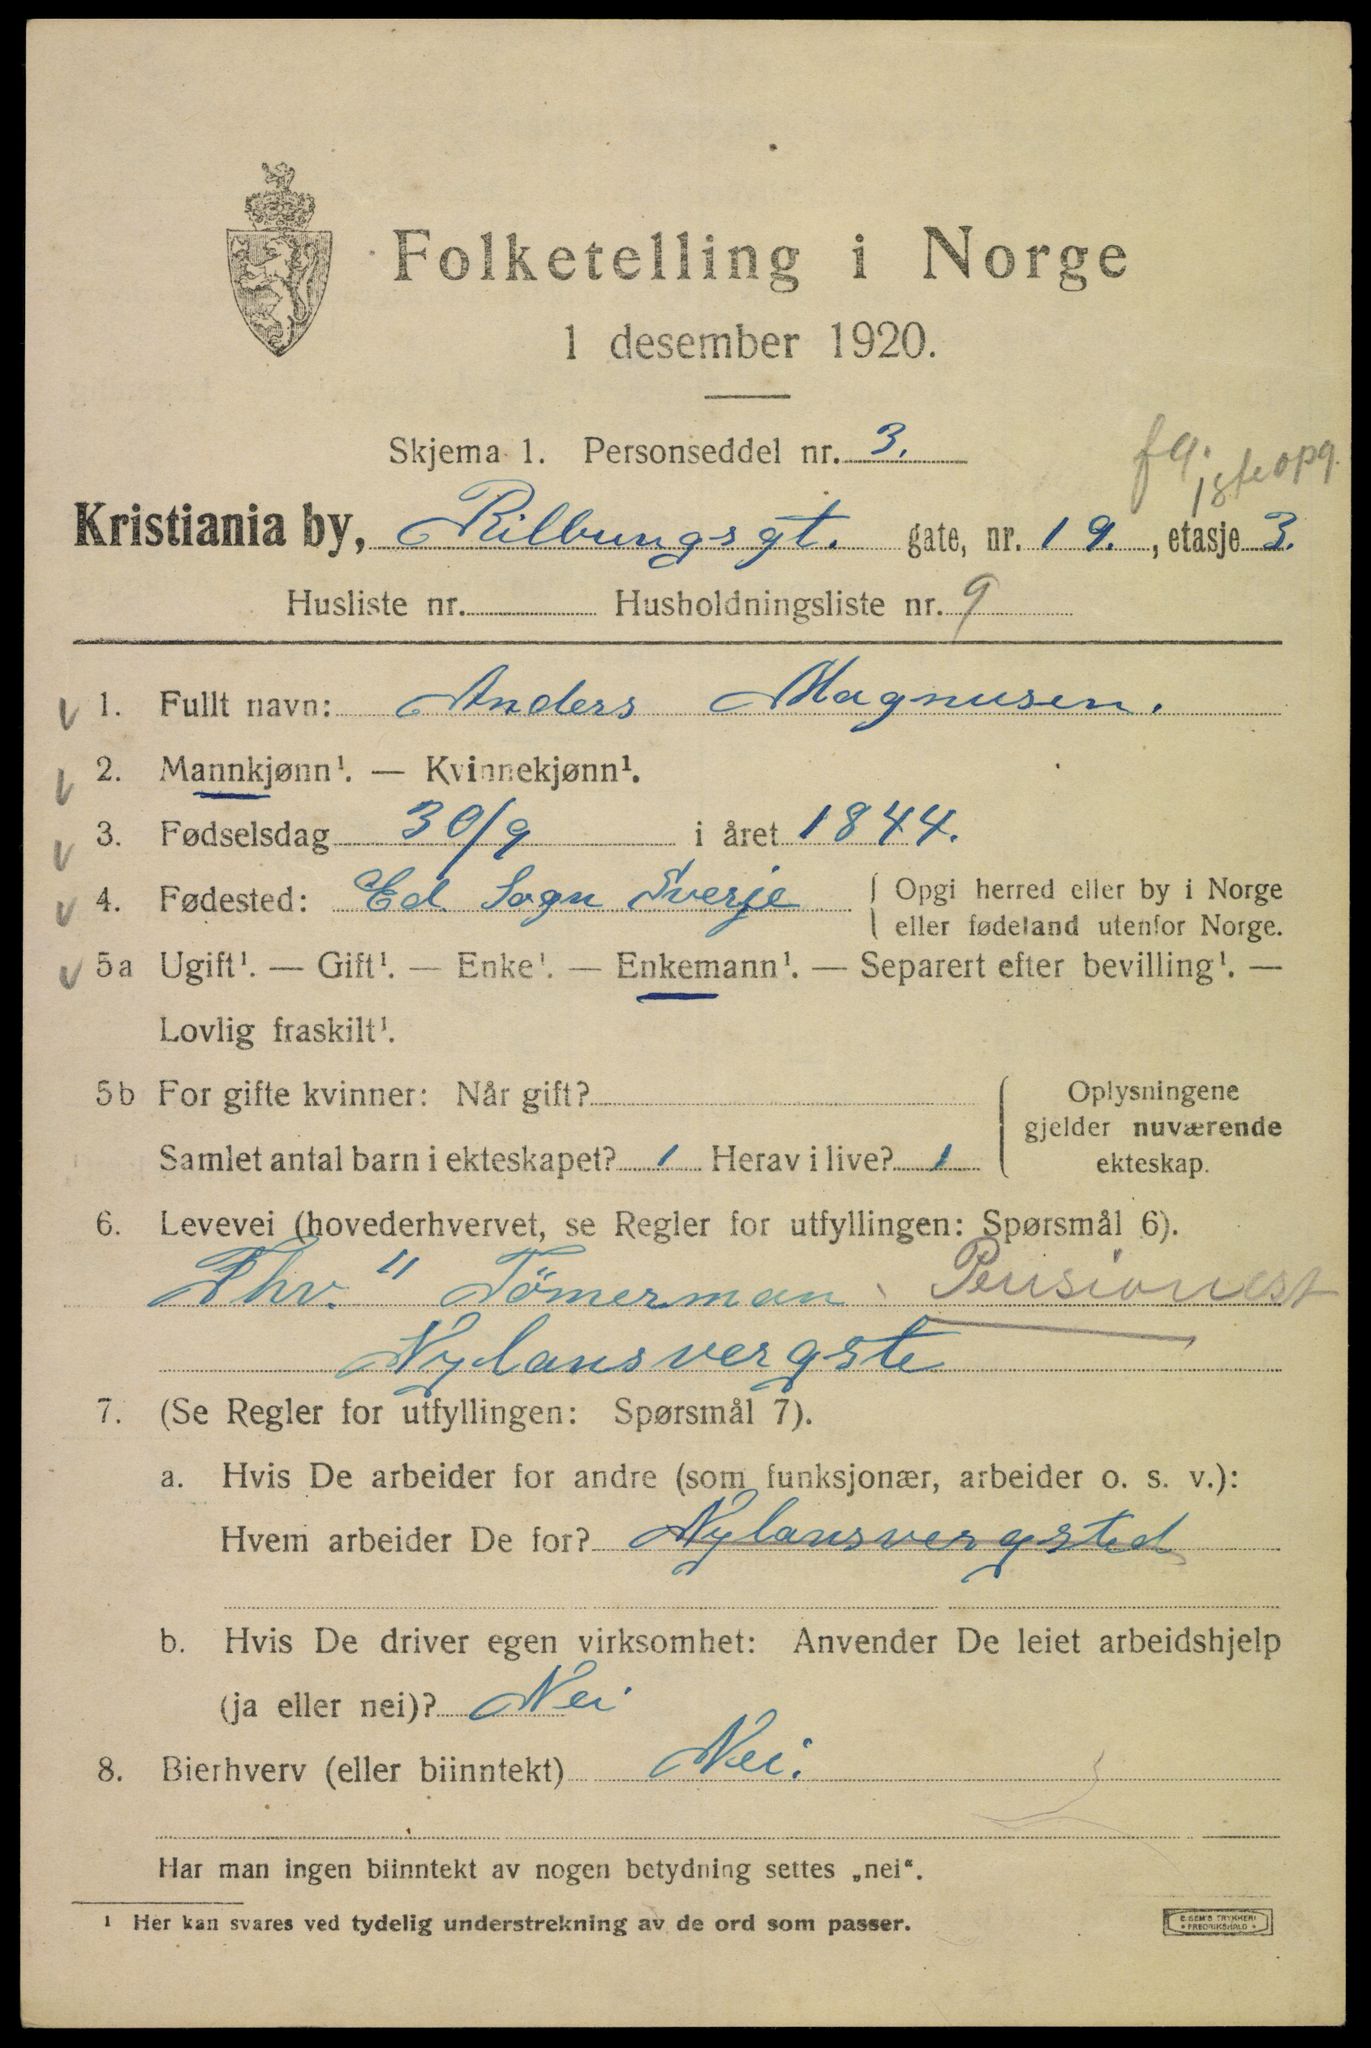 Folketelling i Norge
1 desember 1920.
Skjema 1. Personseddel nr. 3.
Kristiania by, Rilbungsgt. gate, nr. 19., etasje 3.
Husliste nr. Husholdningsliste nr. 9
1. Fullt navn: Anders Magnusen.
2. Mannkjønn¹. — Kvinnekjønn¹.
3. Fødselsdag 30/9 i året 1844.
4. Fødested: Ed Sogn Sverje { Opgi herred eller by i Norge
eller fødeland utenfor Norge.
5a Ugift¹. — Gift¹. — Enke¹. — Enkemann¹. — Separert efter bevilling¹. —
Lovlig fraskilt¹.
5b For gifte kvinner: Når gift?
Samlet antal barn i ekteskapet? 1 Herav i live? 1
Oplysningene
gjelder nuværende
ekteskap.
6. Levevei (hovederhvervet, se Regler for utfyllingen: Spørsmål 6).
Fhv. " Tömerman Pensionist
Nylansvergste
7. (Se Regler for utfyllingen: Spørsmål 7).
a. Hvis De arbeider for andre (som funksjonær, arbeider o. s. v.):
Hvem arbeider De for? Nylansvergsted
b. Hvis De driver egen virksomhet: Anvender De leiet arbeidshjelp
(ja eller nei)? Nei
8. Bierhverv (eller biinntekt) Nei.
Har man ingen biinntekt av nogen betydning settes „nei“.
¹ Her kan svares ved tydelig understrekning av de ord som passer.
E. SEM'S TRYKKERI
FREDRIKSHALD